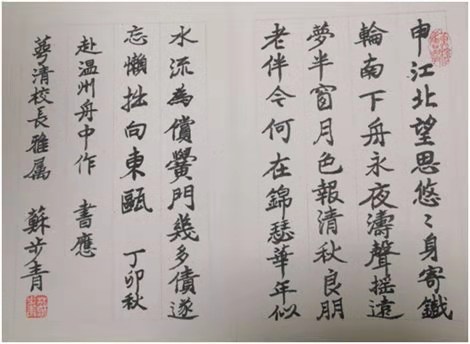 申江北望思悠〻身寄鐵
輪南下舟永夜濤聲搖遠
夢半窗月色報清秋良朋
老伴今何在錦瑟華年似
水流為償黌門幾多債遂
忘懶拙向東甌 丁卯秋
赴温州舟中作 書應
蕚清校長雅属 蘇步青